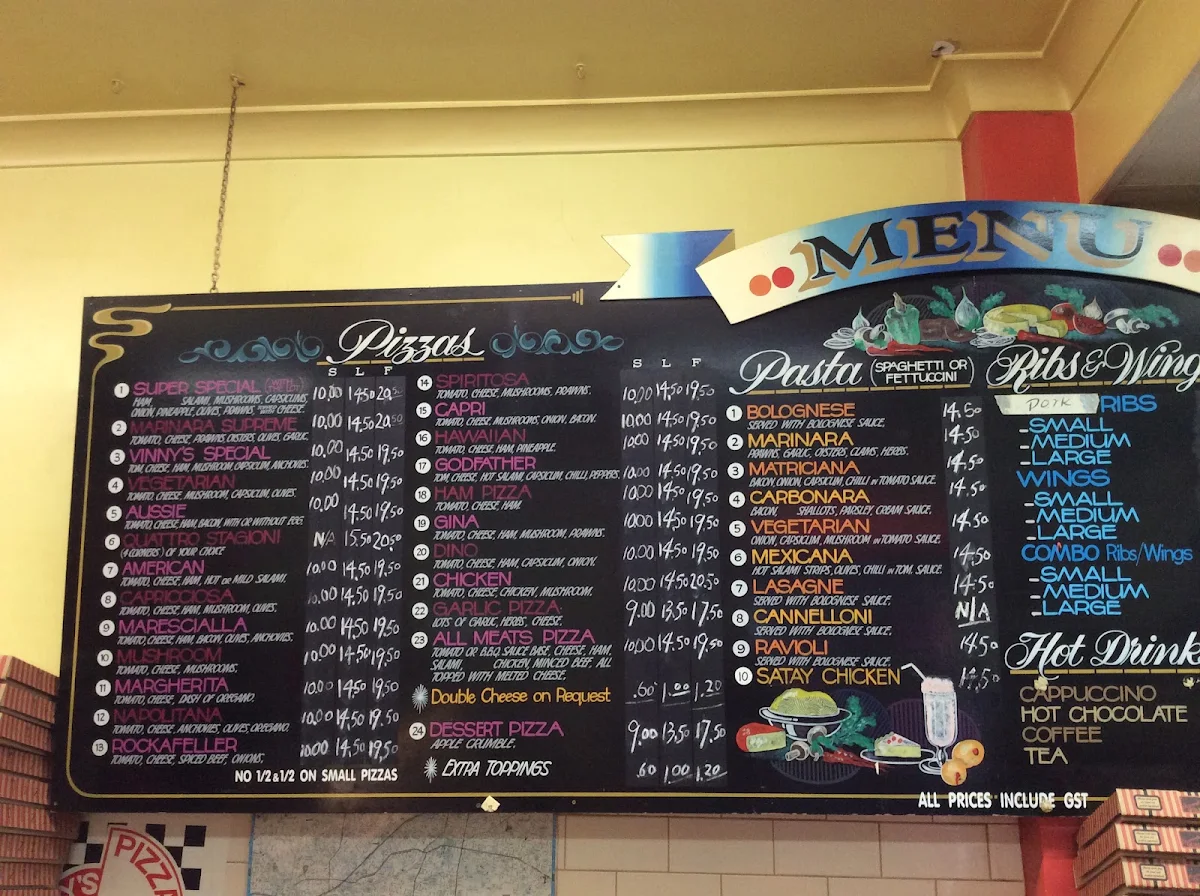 MENU
Pizzas
S L F
1 SUPER SPECIAL 10.00 14.50 20.50
HAM, SALAMI, MUSHROOMS, CAPSICUMS,
ONION, PINEAPPLE, OLIVES, PRAWNS, CHEESE.
2 MARINARA SUPREME 10.00 14.50 20.50
TOMATO, CHEESE, PRAWNS, OYSTERS, OLIVES, GARLIC.
3 VINNY'S SPECIAL 10.00 14.50 19.50
TOM, CHEESE, HAM, MUSHROOM, CAPSICUM, ANCHOVIES.
4 VEGETARIAN 10.00 14.50 19.50
TOMATO, CHEESE, MUSHROOM, CAPSICUM, OLIVES.
5 AUSSIE 10.00 14.50 19.50
TOMATO, CHEESE, HAM, BACON, WITH OR WITHOUT EGG.
6 QUATTRO STAGIONI N/A 15.50 20.50
(4 CORNERS) OF YOUR CHOICE
7 AMERICAN 10.00 14.50 19.50
TOMATO, CHEESE, HAM, HOT OR MILD SALAMI.
8 CAPRICCIOSA 10.00 14.50 19.50
TOMATO, CHEESE, HAM, MUSHROOM, OLIVES.
9 MARESCIALLA 10.00 14.50 19.50
TOMATO, CHEESE, HAM, BACON, OLIVES, ANCHOVIES.
10 MUSHROOM 10.00 14.50 19.50
TOMATO, CHEESE, MUSHROOMS.
11 MARGHERITA 10.00 14.50 19.50
TOMATO, CHEESE, DASH OF OREGANO.
12 NAPOLITANA 10.00 14.50 19.50
TOMATO, CHEESE, ANCHOVIES, OLIVES, OREGANO.
13 ROCKAFELLER 10.00 14.50 19.50
TOMATO, CHEESE, SPICED BEEF, ONIONS.
NO 1/2 & 1/2 ON SMALL PIZZAS
S L F
14 SPIRITOSA 10.00 14.50 19.50
TOMATO, CHEESE, MUSHROOMS, PRAWNS.
15 CAPRI 10.00 14.50 19.50
TOMATO, CHEESE, MUSHROOMS, ONION, BACON.
16 HAWAIIAN 10.00 14.50 19.50
TOMATO, CHEESE, HAM, PINEAPPLE.
17 GODFATHER 10.00 14.50 19.50
TOM, CHEESE, HOT SALAMI, CAPSICUM, CHILLI, PEPPERS.
18 HAM PIZZA 10.00 14.50 19.50
TOMATO, CHEESE, HAM.
19 GINA 10.00 14.50 19.50
TOMATO, CHEESE, HAM, MUSHROOM, PRAWNS.
20 DINO 10.00 14.50 19.50
TOMATO, CHEESE, HAM, CAPSICUM, ONION.
21 CHICKEN 10.00 14.50 20.50
TOMATO, CHEESE, CHICKEN, MUSHROOM.
22 GARLIC PIZZA. 9.00 13.50 17.50
LOTS OF GARLIC, HERBS, CHEESE.
23 ALL MEATS PIZZA 10.00 14.50 19.50
TOMATO OR B.B.Q. SAUCE BASE, CHEESE, HAM,
SALAMI, CHICKEN, MINCED BEEF, ALL
TOPPED WITH MELTED CHEESE.
Double Cheese on Request .60 1.00 1.20
24 DESSERT PIZZA 9.00 13.50 17.50
APPLE CRUMBLE.
EXTRA TOPPINGS .60 1.00 1.20
Pasta (SPAGHETTI OR
FETTUCCINI)
1 BOLOGNESE 14.50
SERVED WITH BOLOGNESE SAUCE.
2 MARINARA 14.50
PRAWNS, GARLIC, OYSTERS, CLAMS, HERBS.
3 MATRICIANA 14.50
BACON, ONION, CAPSICUM, CHILLI IN TOMATO SAUCE.
4 CARBONARA 14.50
BACON, SHALLOTS, PARSLEY, CREAM SAUCE.
5 VEGETARIAN 14.50
ONION, CAPSICUM, MUSHROOM IN TOMATO SAUCE
6 MEXICANA 14.50
HOT SALAMI STRIPS, OLIVES, CHILLI IN TOM. SAUCE.
7 LASAGNE 14.50
SERVED WITH BOLOGNESE SAUCE.
8 CANNELLONI N/A
SERVED WITH BOLOGNESE SAUCE.
9 RAVIOLI 14.50
SERVED WITH BOLOGNESE SAUCE.
10 SATAY CHICKEN 14.50
Ribs & Wing
PORK RIBS
-SMALL
-MEDIUM
-LARGE
WINGS
-SMALL
-MEDIUM
-LARGE
COMBO Ribs/Wings
-SMALL
-MEDIUM
-LARGE
Hot Drink
CAPPUCCINO
HOT CHOCOLATE
COFFEE
TEA
ALL PRICES INCLUDE GST
PIZZA